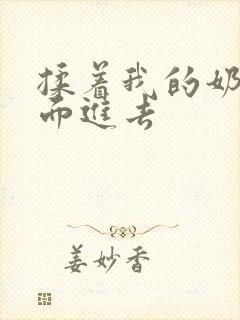 揉着我的奶
而進去
姜妙香